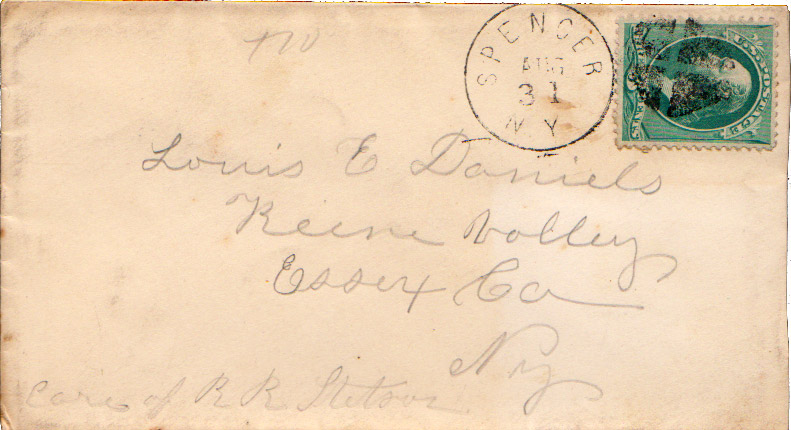 SPENCER
AUG
31
N.Y.
Louis E Daniels
Keene Valley
Essex Co
Ny
Care of R R Stetson